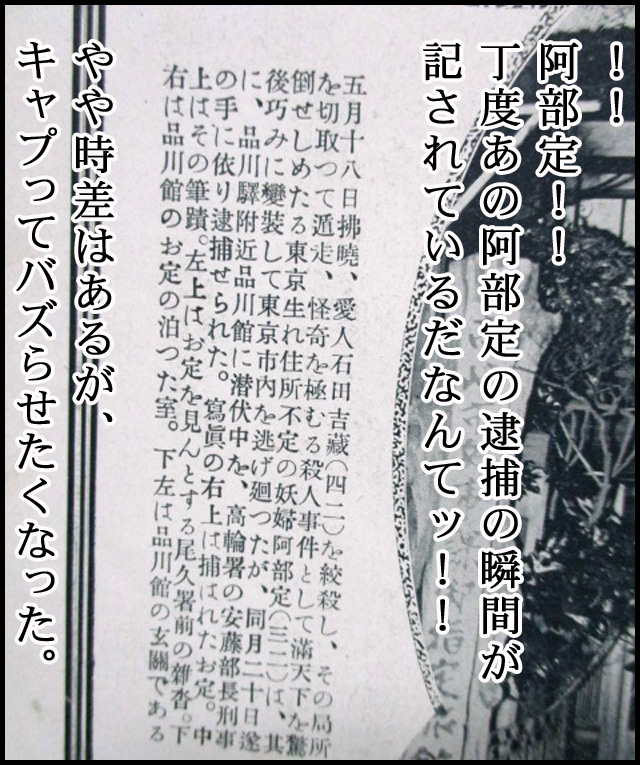 ！！
阿部定！！
丁度あの阿部定の逮捕の瞬間が
記されているだなんてッ！！
五月十八日拂曉、愛人石田吉藏（四二）を絞殺し、その局所
を切取つて遁走、怪奇を極むる殺人事件として滿天下を驚
倒せしめたる東京生れ住所不定の妖婦阿部定（三二）は、其
後巧みに變裝して東京市内を逃げ廻つたが、同月二十日遂
に、品川驛附近品川館に潜伏中を、高輪署の安藤部長刑事
の手に依り逮捕せられた。寫眞の右上は捕はれたお定。中
上はその筆蹟。左上はお定を見んとする尾久署前の雜沓。下
右は品川館のお定の泊つた室。下左は品川館の玄關である
やや時差はあるが、
キャプってバズらせたくなった。